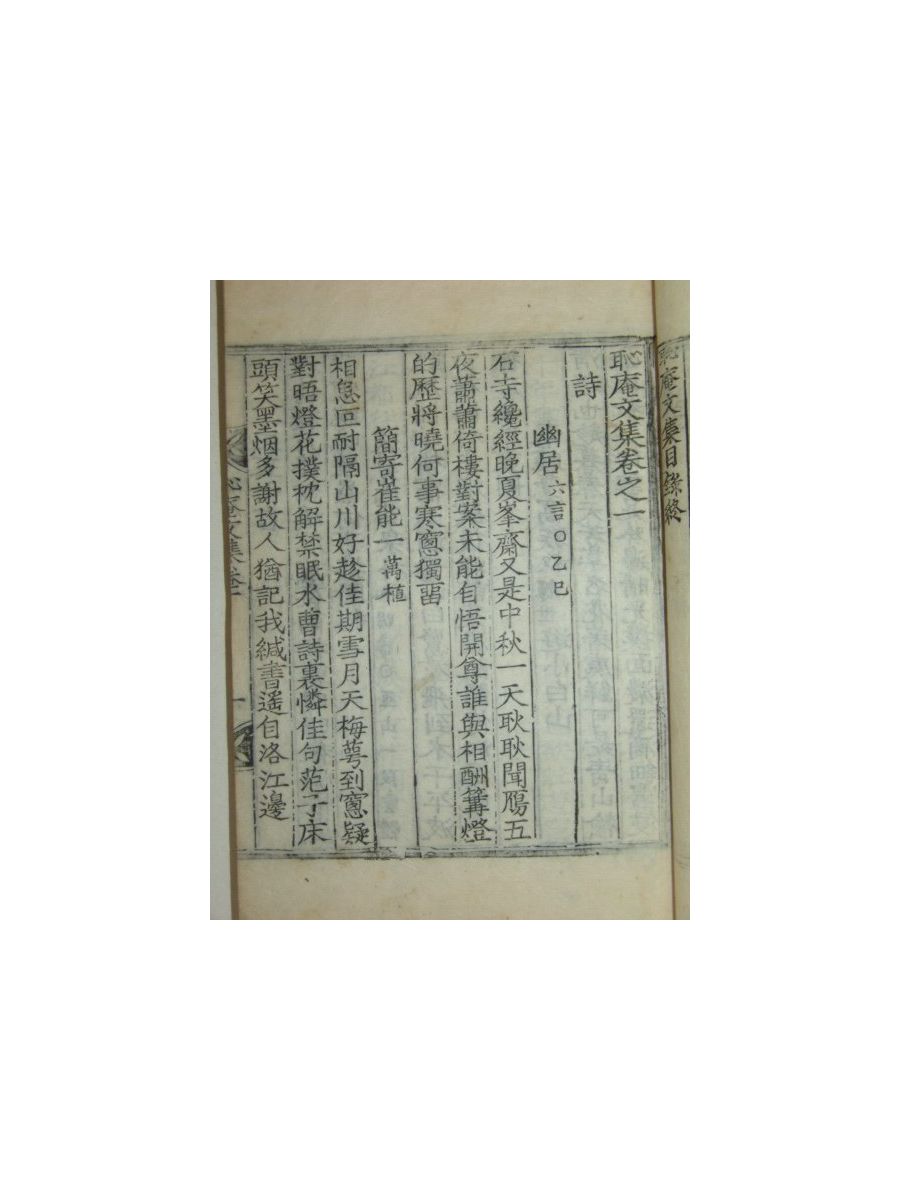 恥庵文集目錄終
恥庵文集卷之一
詩
幽居六言〇乙巳
石寺纔經晚夏峯齋又是中秋一天耿耿聞鴈五
夜蕭蕭倚樓對案未能自悟開尊誰與相酬篝燈
的歷將曉何事寒窻獨留
簡寄崔能一萬植
相怱叵耐隔山川好趁佳期雪月天梅萼到窻疑
對晤燈花撲枕解禁眠水曹詩裏憐佳句范子床
頭笑墨烟多謝故人猶記我緘書遙自洛江邊
恥庵文集卷一
一